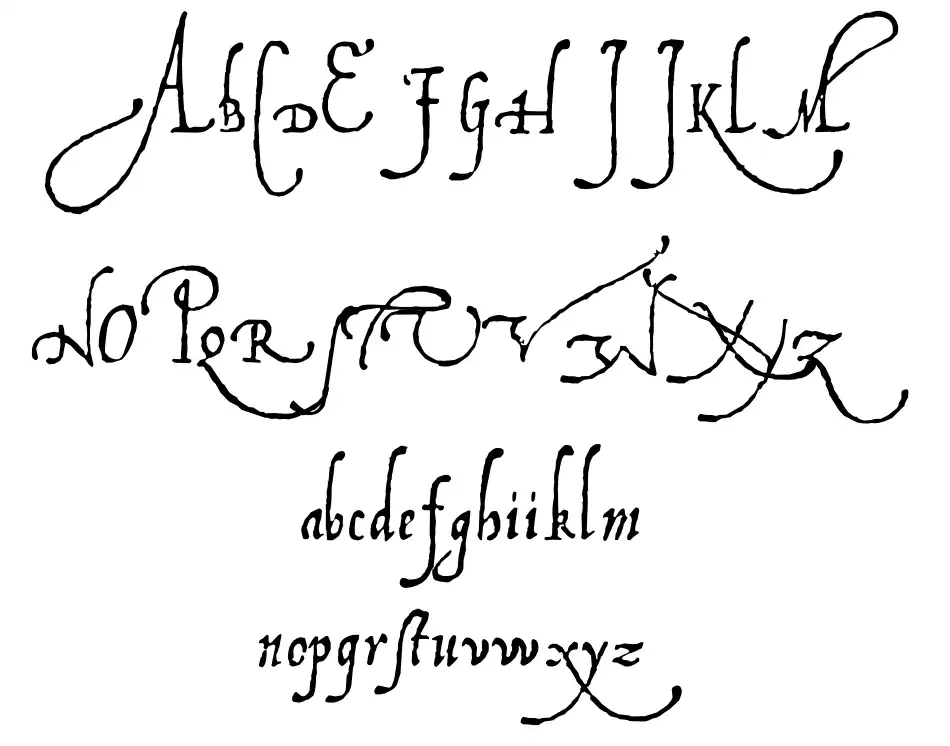 ABCDEFGHIJKLM
NOPQRSTUVWXYZ
abcdefghiiklm
nopqrſtuvwxyz